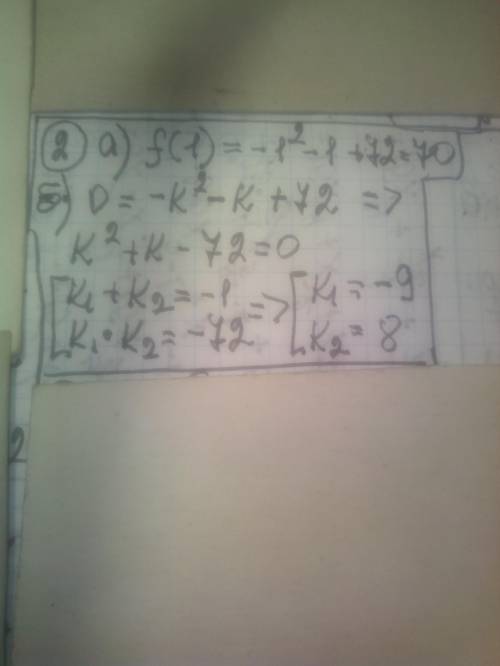 2 а) f(1) = -1² - 1 + 72 = 70
б) 0 = -K² - K + 72 =>
K² + K - 72 = 0
[K₁ + K₂ = -1 => [K₁ = -9
K₁ • K₂ = -72 K₂ = 8
2